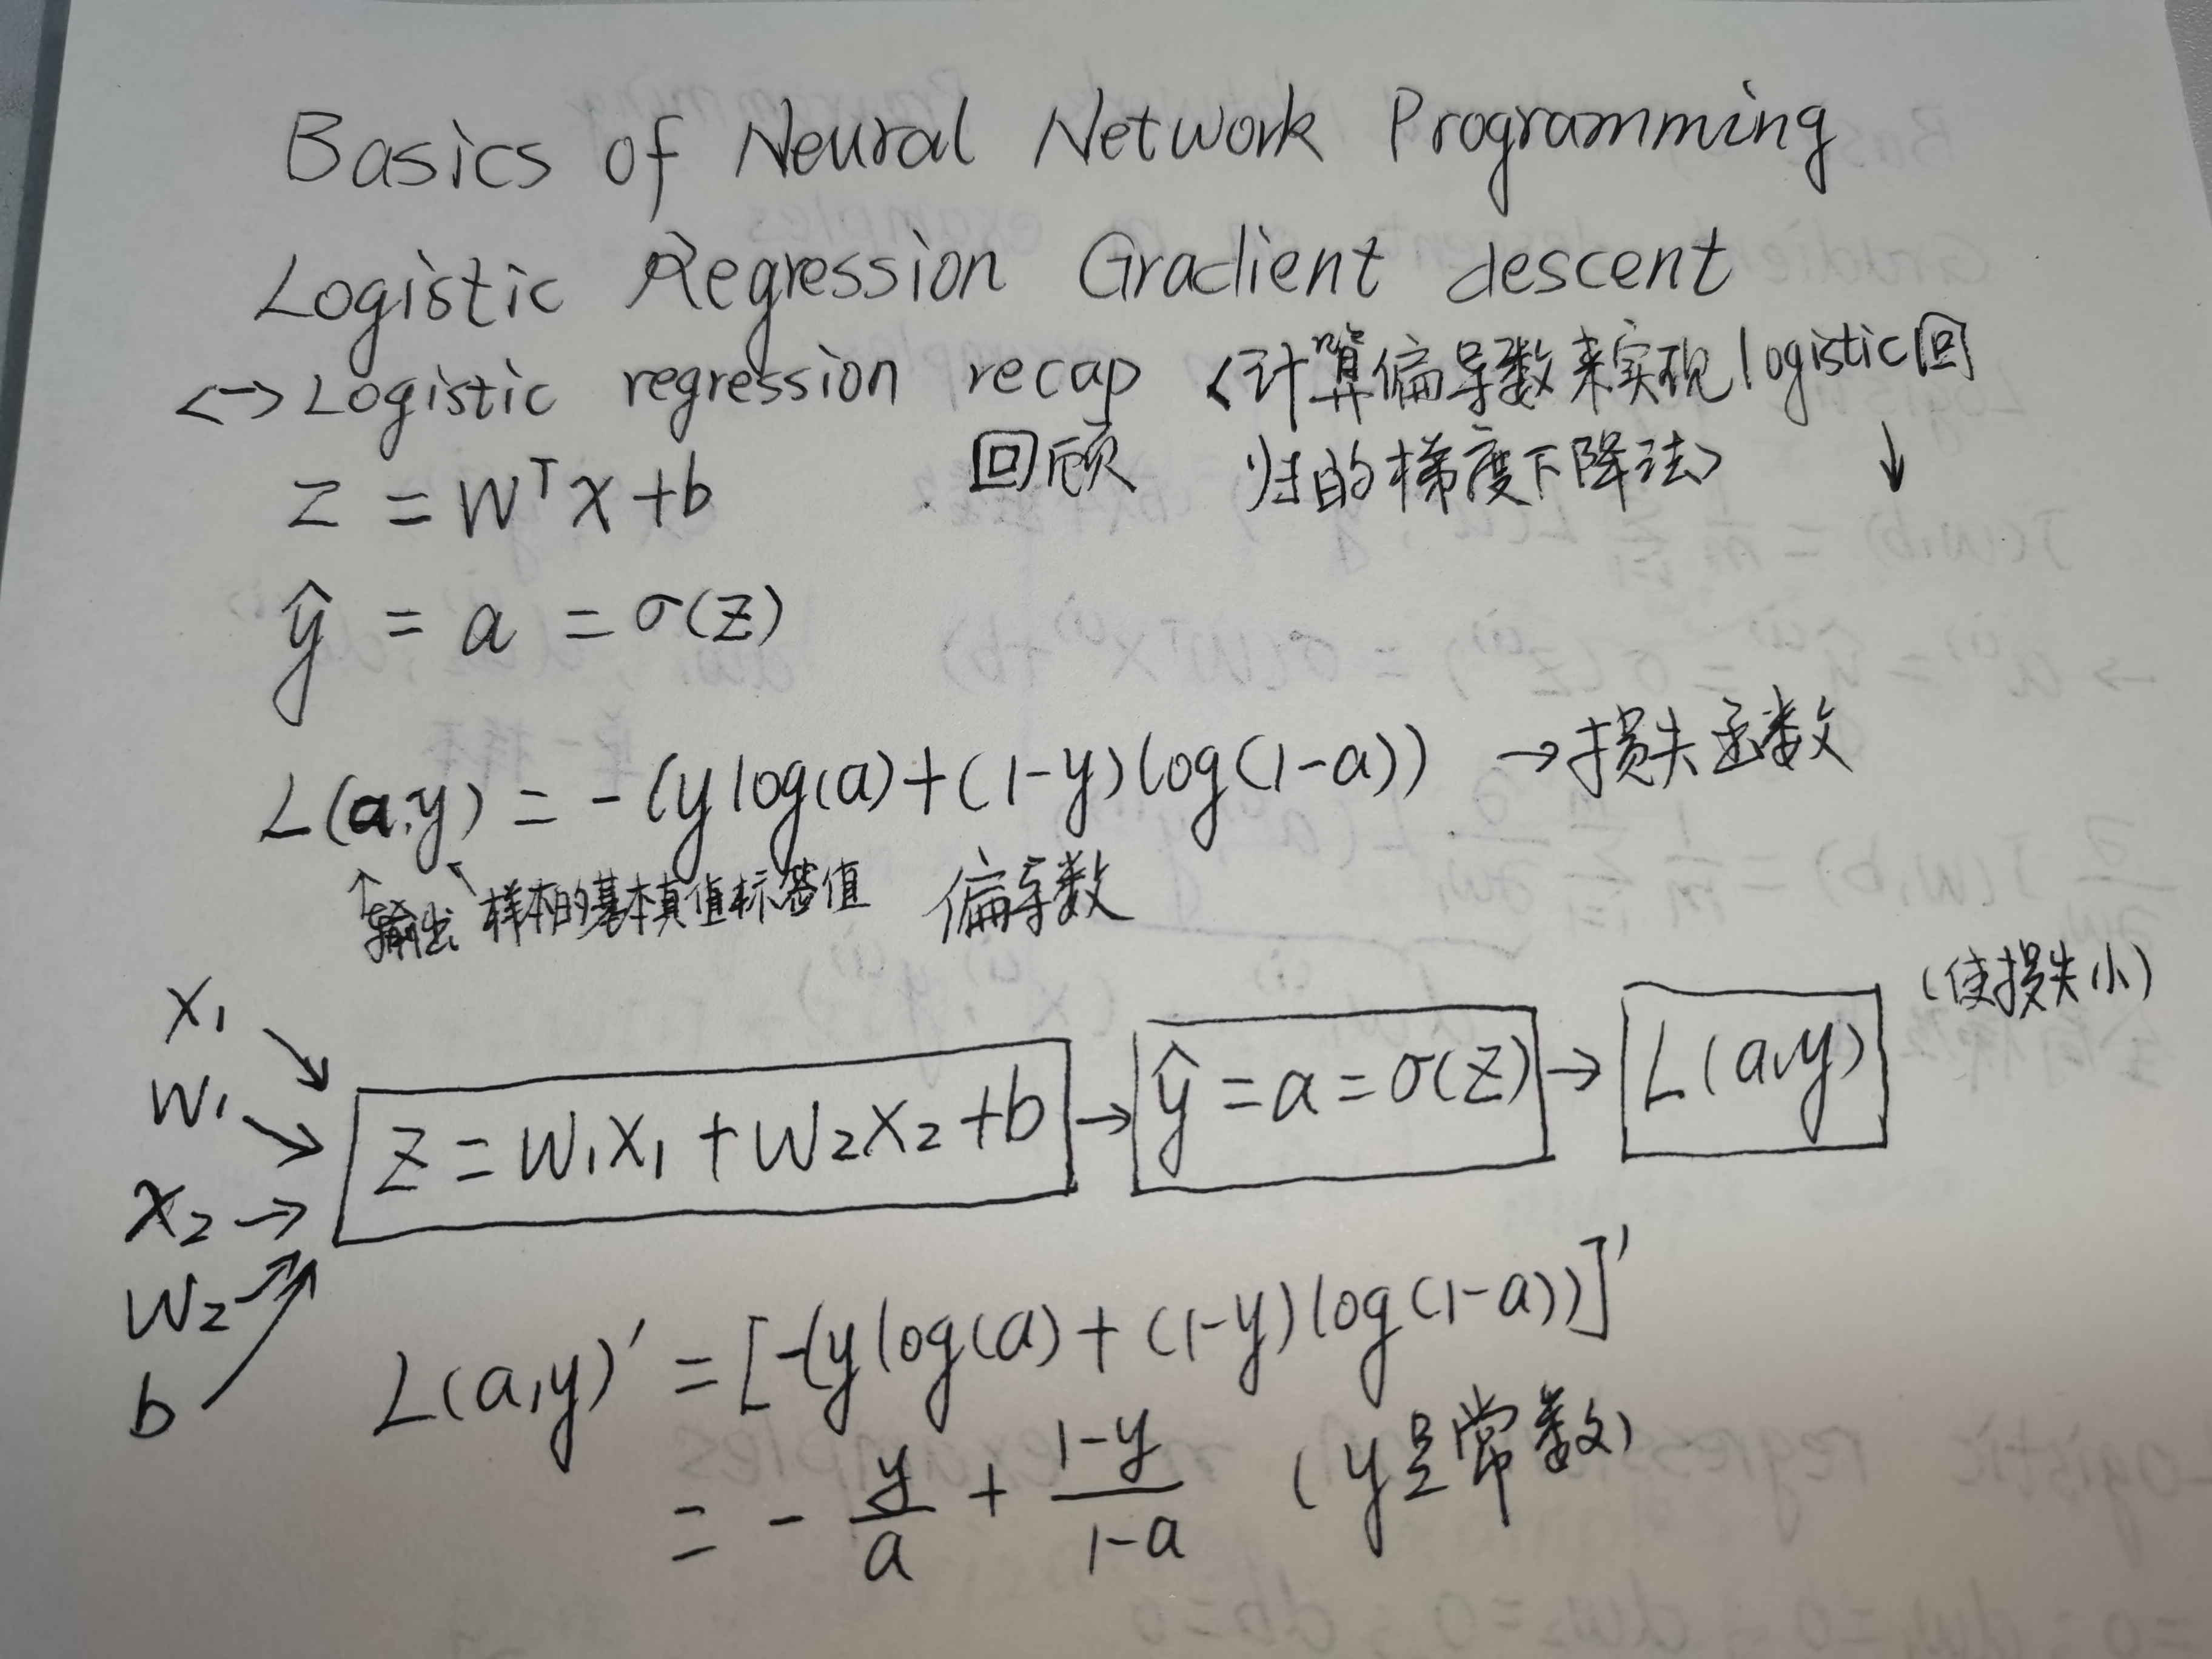 Basics of Neural Network Programming
Logistic Regression Gradient descent
<-> Logistic regression recap <计算偏导数来实现logistic回
回顾 归的梯度下降法> ↓
z = wᵀx+b
ŷ = a = σ(z)
L(a,y) = -(y log(a)+(1-y)log(1-a)) →损失函数
↑输出 样本的基本真值标签值 偏导数
(使损失小)
x₁
w₁
x₂ →
w₂
b
z = w₁x₁+w₂x₂+b → ŷ = a = σ(z) → L(a,y)
L(a,y)' = [-(y log(a)+(1-y)log(1-a))]'
= - y/a + (1-y)/(1-a) (y是常数)